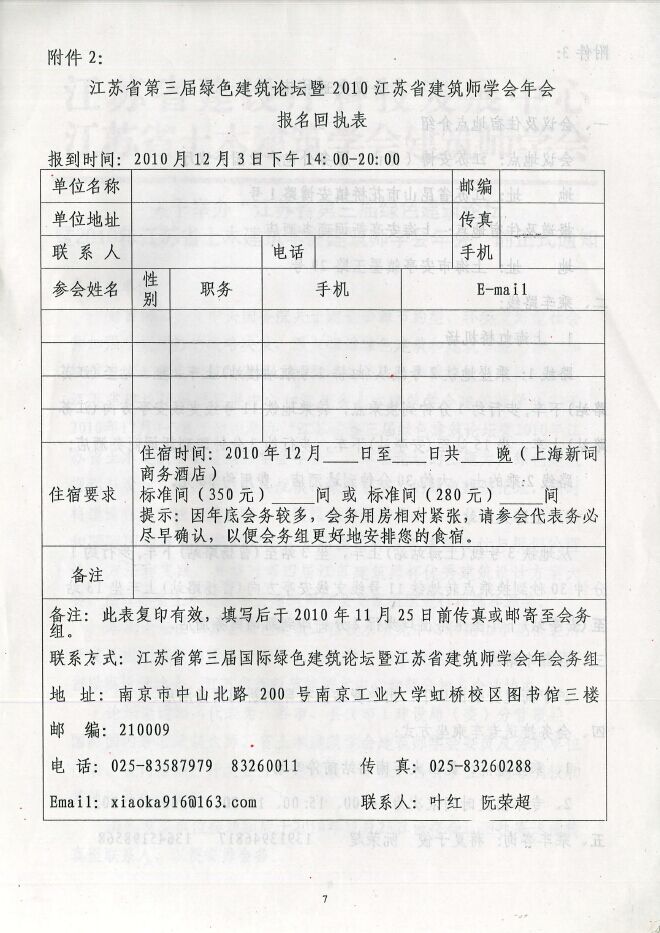 附件 2：
江苏省第三届绿色建筑论坛暨 2010 江苏省建筑师学会年会
报名回执表
报到时间：2010 月 12 月 3 日下午 14:00-20:00
单位名称 邮编
单位地址 传真
联 系 人 电话 手机
参会姓名 性别 职务 手机 E-mail
住宿要求
住宿时间：2010 年 12 月 ___日至___日共____晚（上海新词
商务酒店）
标准间（350 元）_____间 或 标准间（280 元）_____间
提示：因年底会务较多，会务用房相对紧张，请参会代表务必
尽早确认，以便会务组更好地安排您的食宿。
备注
备注：此表复印有效，填写后于 2010 年 11 月 25 日前传真或邮寄至会务
组。
联系方式：江苏省第三届国际绿色建筑论坛暨江苏省建筑师学会年会务组
地 址：南京市中山北路 200 号南京工业大学虹桥校区图书馆三楼
邮 编：210009
电 话：025-83587979 83260011 传 真：025-83260288
Email：xiaoka916@163.com 联系人：叶红 阮荣超
7